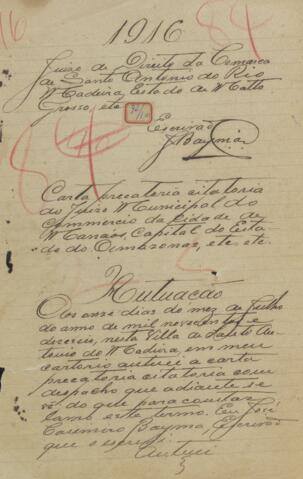 1916
Juizo de Direito da Comarca
de Santo Antonio do Rio
Madeira, Estado de Matto
Grosso, etc
Escrivão
J Bayma
Carta precatoria citatoria
do Juizo Municipal do
Commercio da Cidade de
Manáos, Capital do Esta
do do Amazonas, etc. etc.
Autuação
Aos onze dias do mez de Julho
do anno de mil novecentos e
deseseis, nesta Villa de Santo An
tonio do Madeira, em meu
cartorio autuei a carta
precatoria citatoria com
despacho que adiante se
vê, do que para constar
lavro este termo. Eu José
Casemiro Bayma, Escrivão
que o escrevi
Autuei